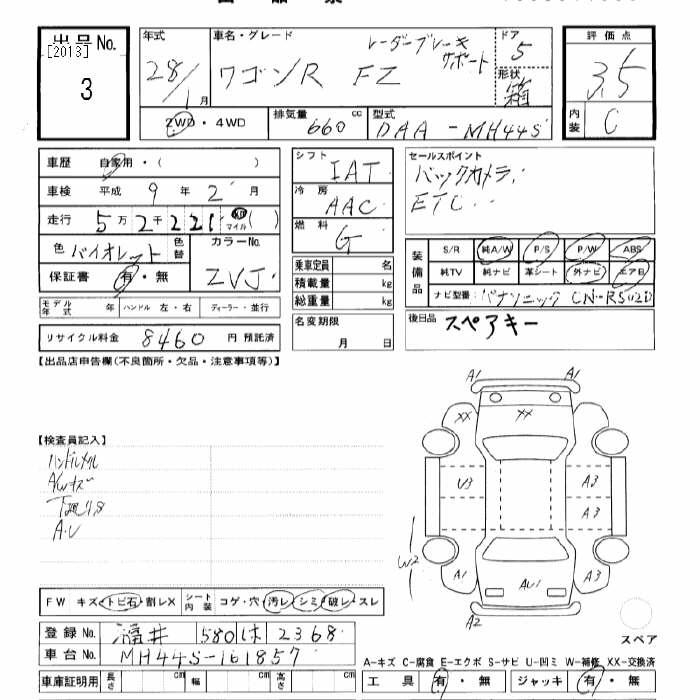 出品No.
[2013]
3
年式
28/1月
車名・グレード
レーダーブレーキサポート
ワゴンR FZ
ドア
5
形状
箱
評価点
3.5
内装
C
2WD・4WD
排気量
660 cc
型式
DAA-MH44S
車歴 自家用・( )
車検 平成 9 年 2 月
走行 5万2千221 km マイル ( )
色 バイオレット 色替
カラーNo.
ZVJ
保証書 有・無
モデル年式 年 ハンドル 左・右 ディーラー・並行
リサイクル料金 8460 円 預託済
シフト
IAT
冷房
AAC
燃料
G
乗車定員 名
積載量 kg
総重量 kg
名変期限
月 日
セールスポイント
バックカメラ
ETC
装備品
S/R 純A/W P/S P/W ABS
純TV 純ナビ 革シート 外ナビ エアB
ナビ型番 パナソニック CN-RS02D
後日品 スペアキー
【出品店申告欄(不良箇所・欠品・注意事項等)】
【検査員記入】
A/Wキズ
A.U
A1
A1
XX
XX
U3
A3
A3
W2
A1
AU1
A3
A2
スペア
FW キズ・トビ石・割レX シート内装 コゲ・穴・汚レ・シミ・破レ・スレ
登録No. 福井 580 ほ 2368
車台No. MH44S-161857
車庫証明用 長さ cm 幅 cm 高さ cm
A-キズ C-腐食 E-エクボ S-サビ U-凹ミ W-補修 XX-交換済
工具 有・無 ジャッキ 有・無